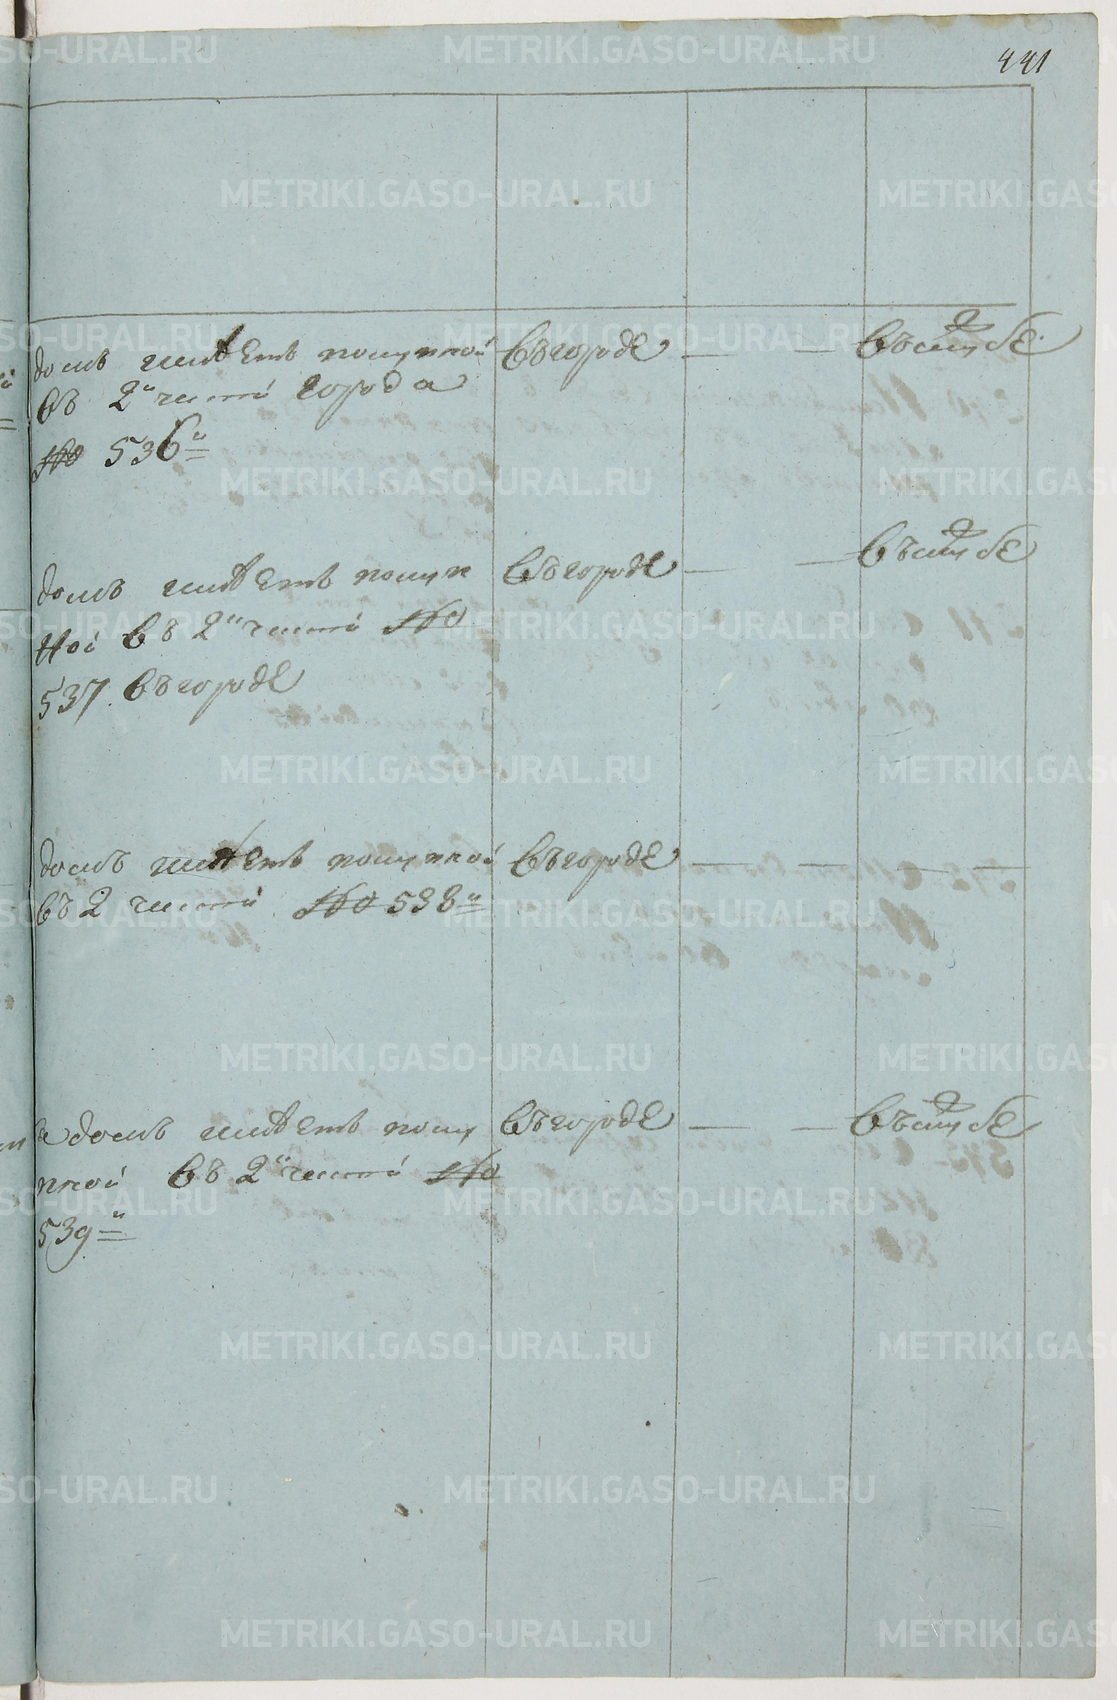 441
домъ имѣетъ покупной
въ 2й части города
№ 536й
въ городѣ
въ службѣ
домъ имѣетъ покуп
ной въ 2й части №
537 въ городѣ
въ городѣ
въ службѣ
домъ имѣетъ покупной
въ 2 части № 538й
въ городѣ
домъ имѣетъ поку
пной въ 2й части №
539й
въ городѣ
въ службѣ
METRIKI.GASO-URAL.RU